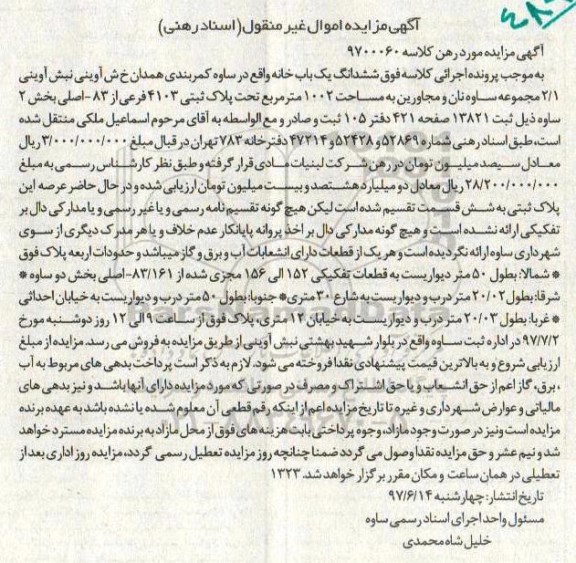 آگهی مزایده اموال غیر منقول (اسناد رهنی)
آگهی مزایده مورد رهن کلاسه ۹۷۰۰۰۶۰
به موجب پرونده اجرائی کلاسه فوق ششدانگ یک باب خانه واقع در ساوه کمربندی همدان خ ش آوینی نبش آوینی
۲/۱ مجموعه ساوه نان و مجاورین به مساحت ۱۰۰۲ مترمربع تحت پلاک ثبتی ۴۱۰۳ فرعی از ۸۳ -اصلی بخش ۲
ساوه ذیل ثبت ۱۳۸۲۱ صفحه ۴۲۱ دفتر ۱۰۵ ثبت و صادر و مع الواسطه به آقای مرحوم اسماعیل ملکی منتقل شده
است، طبق اسناد رهنی شماره ۵۲۸۶۹ و ۵۲۴۲۸ و ۴۷۲۱۴ دفترخانه ۷۸۳ تهران در قبال مبلغ ۳/۰۰۰/۰۰۰/۰۰۰ ریال
معادل سیصد میلیون تومان در رهن شرکت لبنیات قرار گرفته و طبق نظر کارشناس رسمی به مبلغ
۲۸/۲۰۰/۰۰۰/۰۰۰ ریال معادل دو میلیارد هشتصد و بیست میلیون تومان ارزیابی شده و در حال حاضر عرصه این
پلاک ثبتی به شش قسمت تقسیم شده است لیکن هیچ گونه تقسیم نامه رسمی و یا غیر رسمی و یا مدارکی دال بر
تفکیکی ارائه نشده است و هیچ گونه مدارکی دال بر اخذ پروانه پایانکار عدم خلاف و یا هر مدرک دیگری از سوی
شهرداری ساوه ارائه نگردیده است و هر یک از قطعات دارای انشعابات آب و برق و گاز میباشد و حدودات اربعه پلاک فوق
* شمالا: بطول ۵۰ متر دیواریست به قطعات تفکیکی ۱۵۲ الی ۱۵۶ مجزی شده از ۸۳/۱۶۱- اصلی بخش دو ساوه *
شرقا: بطول ۲۰/۰۲ متر درب و دیواریست به شارع ۳۰ متری* جنوبا: بطول ۵۰ متر درب و دیواریست به خیابان احداثی
* غربا: بطول ۲۰/۰۳ متر درب و دیواریست به خیابان ۱۲ متری، پلاک فوق از ساعت ۹ الی ۱۲ روز دوشنبه مورخ
۹۷/۷/۲ در اداره ثبت ساوه واقع در بلوار شهید بهشتی نبش آوینی از طریق مزایده به فروش می رسد. مزایده از مبلغ
ارزیابی شروع و به بالاترین قیمت پیشنهادی نقدا فروخته می شود. لازم به ذکر است پرداخت بدهی های مربوط به آب
، برق، گاز اعم از حق انشعاب و یا حق اشتراک و مصرف در صورتی که مورد مزایده دارای آنها باشد و نیز بدهی های
مالیاتی و عوارض شهرداری و غیره تا تاریخ مزایده اعم از اینکه رقم قطعی آن معلوم شده یا نشده باشد به عهده برنده
مزایده است ونیز در صورت وجود مازاد، وجوه پرداختی بابت هزینه های فوق از محل مازاد به برنده مزایده مسترد خواهد
شد و نیم عشر و حق مزایده نقدا وصول می گردد ضمنا چنانچه روز مزایده تعطیل رسمی گردد، مزایده روز اداری بعد از
تعطیلی در همان ساعت و مکان مقرر برگزار خواهد شد. ۱۳۲۳
تاریخ انتشار: چهارشنبه ۹۷/۶/۱۴
مسئول واحد اجرای اسناد رسمی ساوه
خلیل شاه محمدی